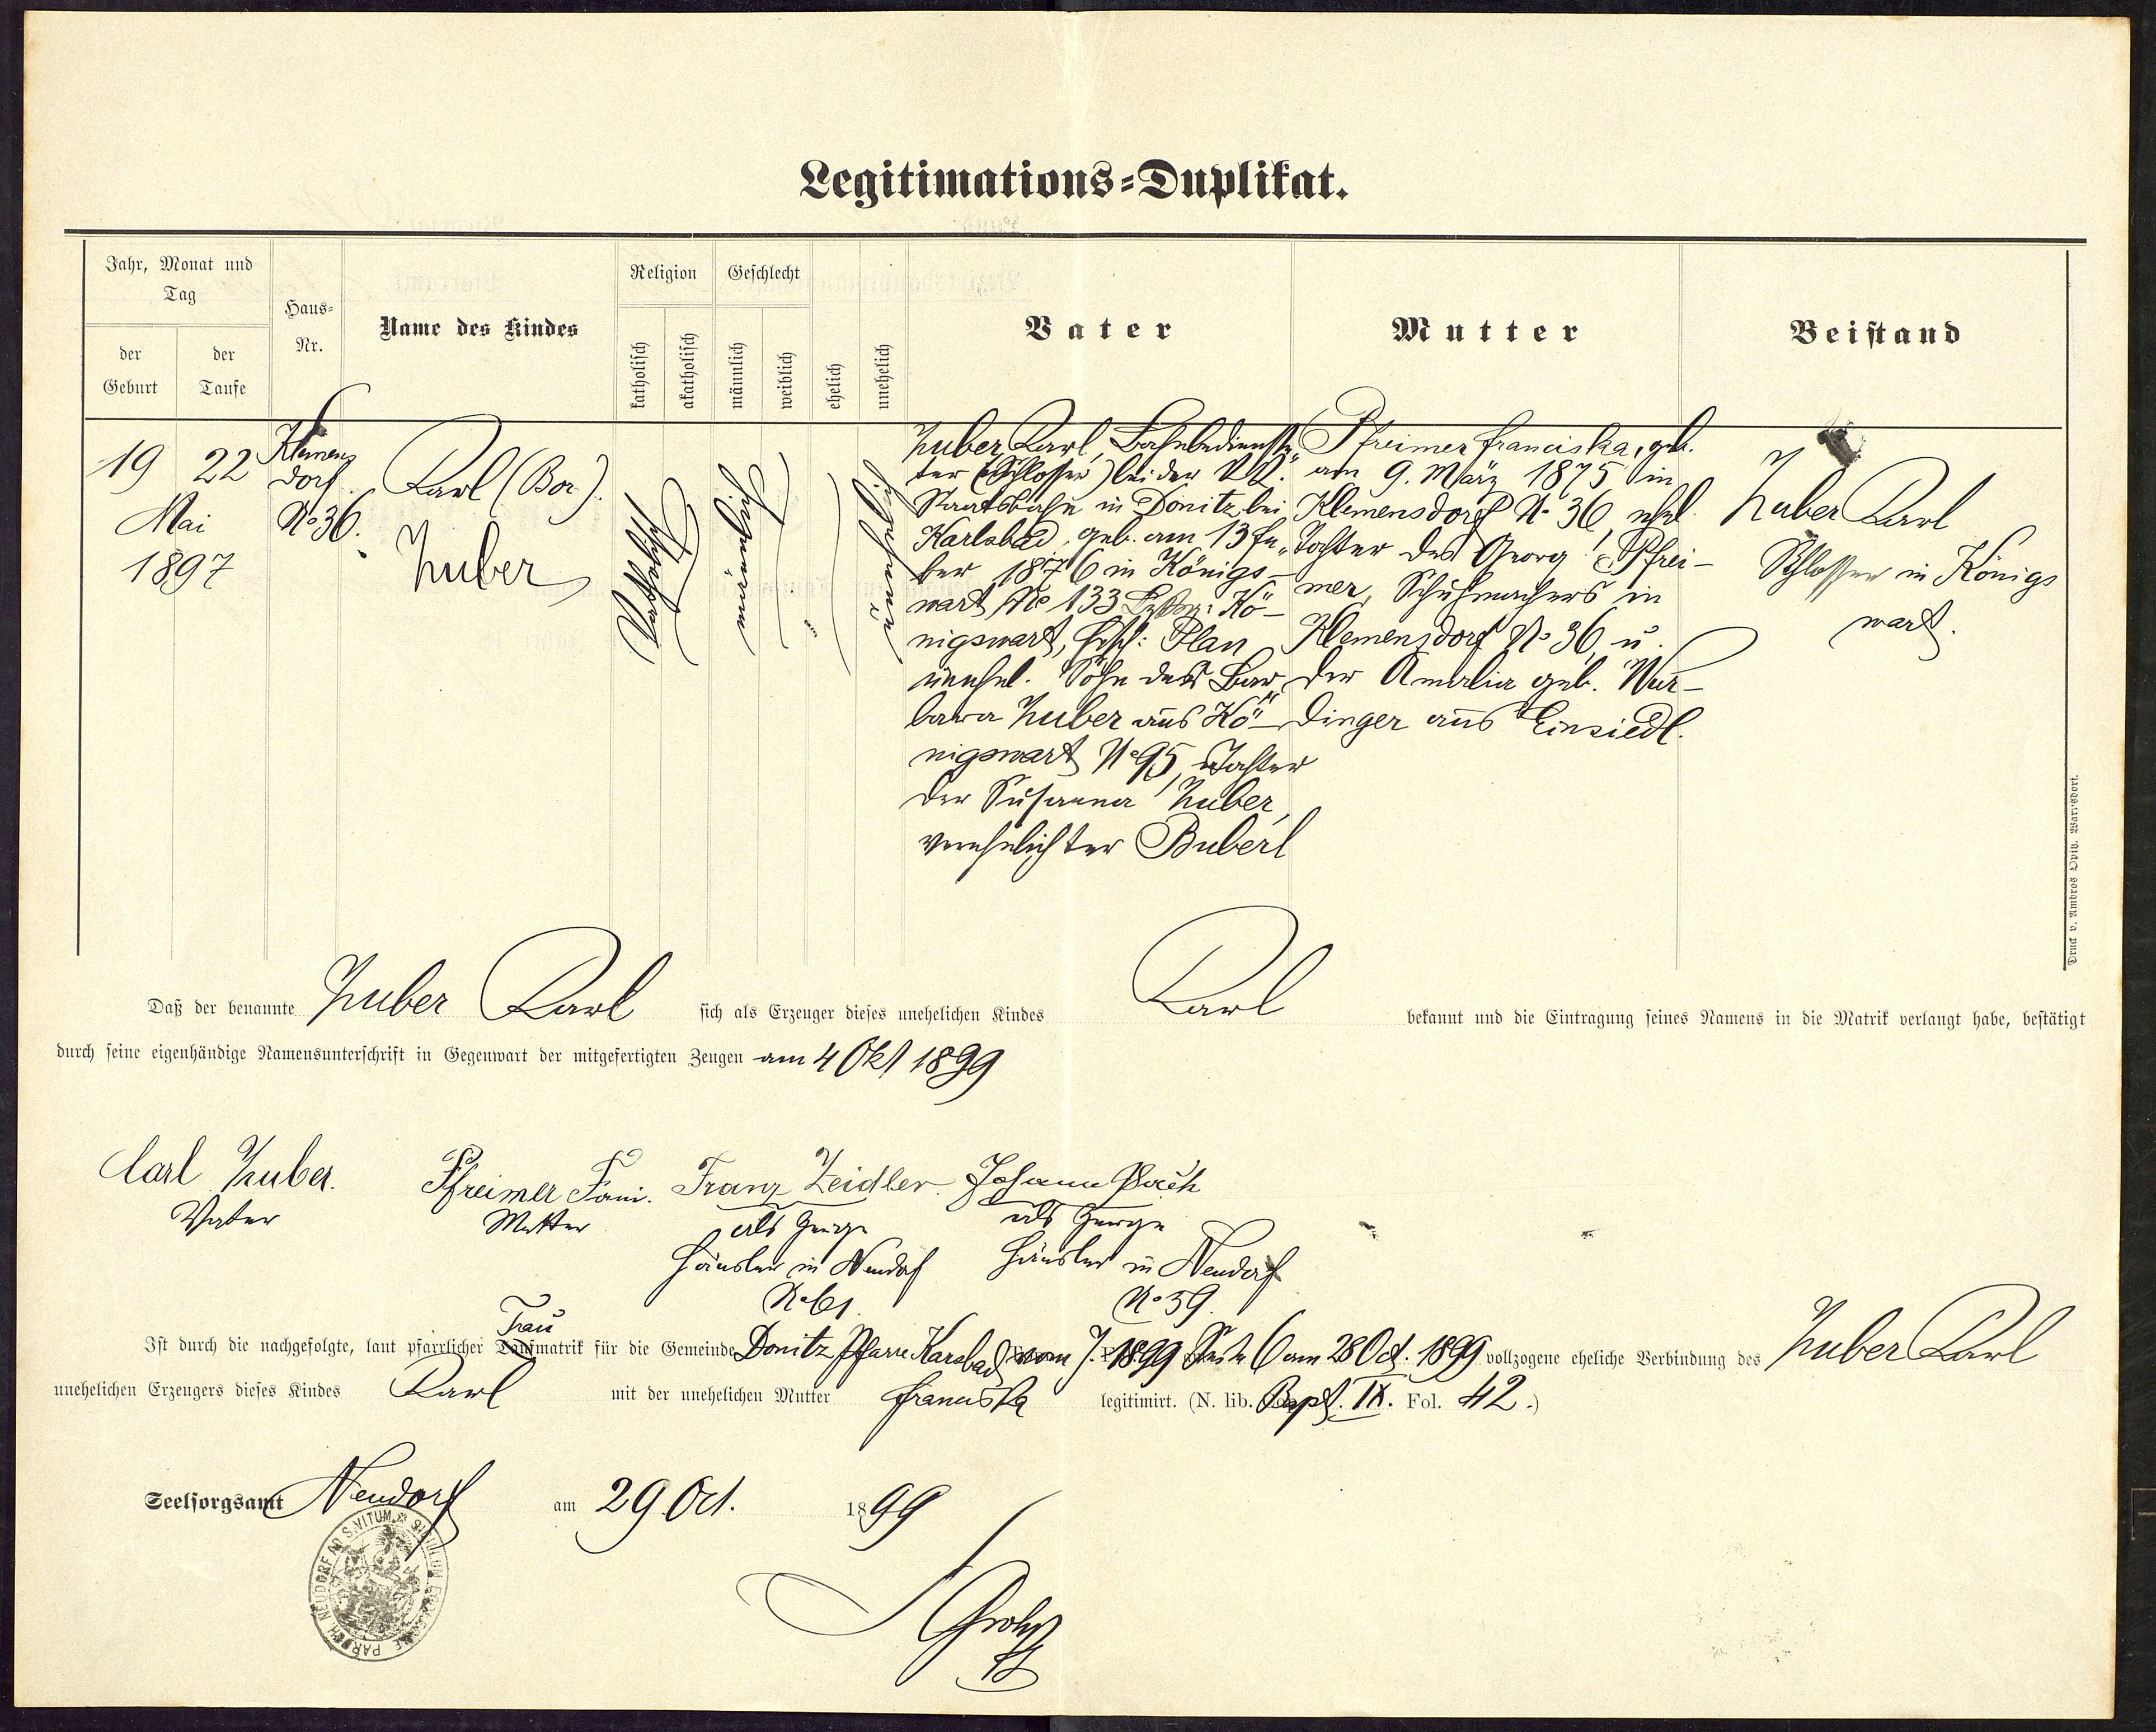 Legitimations=Duplikat.
Jahr, Monat und Tag
der Geburt
der Taufe
Haus=Nr.
Name des Kindes
Religion
katholisch
akatholisch
Geschlecht
männlich
weiblich
ehelich
unehelich
Vater
Mutter
Beistand
19
Mai
1897
22
Klemens
dorf
No 36.
Karl (Bor.)
Huber
Katholisch
männlich
unehelich
Huber Karl, Bahnbedienste„
ter (Schlosser) bei der KK.
Staatsbahn in Donitz bei
Karlsbad, geb. am 13 Fe„
ber 1876 in Königs-
wart No 133 Bzk: Kö-
nigswart, Hptsch: Plan
unehel. Sohn der Bar„
bara Huber aus Kö-
nigswart No 95, Tochter
der Susanna Huber,
verehelichter Buberl
Pfreimer Franciska, geb.
am 9. März 1875 in
Klemensdorf No 36, ehel.
Tochter des Georg Pfrei-
mer, Schuhmachers in
Klemensdorf No 36, u.
der Amalia geb. Wur-
dinger aus Einsiedl.
Huber Karl
Schlosser in Königs
wart.
Druck v. Ambros Opitz, Warnsdorf.
Daß der benannte Huber Karl sich als Erzeuger dieses unehelichen Kindes Karl bekannt und die Eintragung seines Namens in die Matrik verlangt habe, bestätigt
durch seine eigenhändige Namensunterschrift in Gegenwart der mitgefertigten Zeugen am 4 Okt 1899
Carl Huber. Pfreimer Fani. Franz Zeidler. Johann
Vater Mutter als Zeuge als Zeuge
Häusler in Neudorf Häusler in Neudorf
No 61. No 59.
Trau
Ist durch die nachgefolgte, laut pfarrlicher Taufmatrik für die Gemeinde Donitz Pfarre Karlsbad vom J. 1899 Seite 6 am 28 Oct. 1899 vollzogene eheliche Verbindung des Huber Karl
unehelichen Erzeugers dieses Kindes Karl mit der unehelichen Mutter Franciska legitimirt. (N. lib. Bapt. IX. Fol. 42.)
Seelsorgsamt Neudorf am 29 Oct. 1899
SIGILLUM ECCLESIAE PAROCH NEUDORF AD S. VITUM